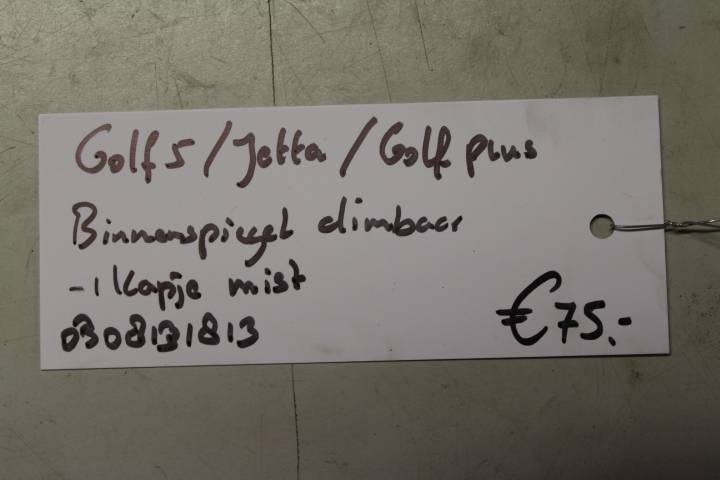 Golf 5 / Jetta / Golf plus
Binnenspiegel dimbaar
- 1 kapje mist
0308131813
€75,-